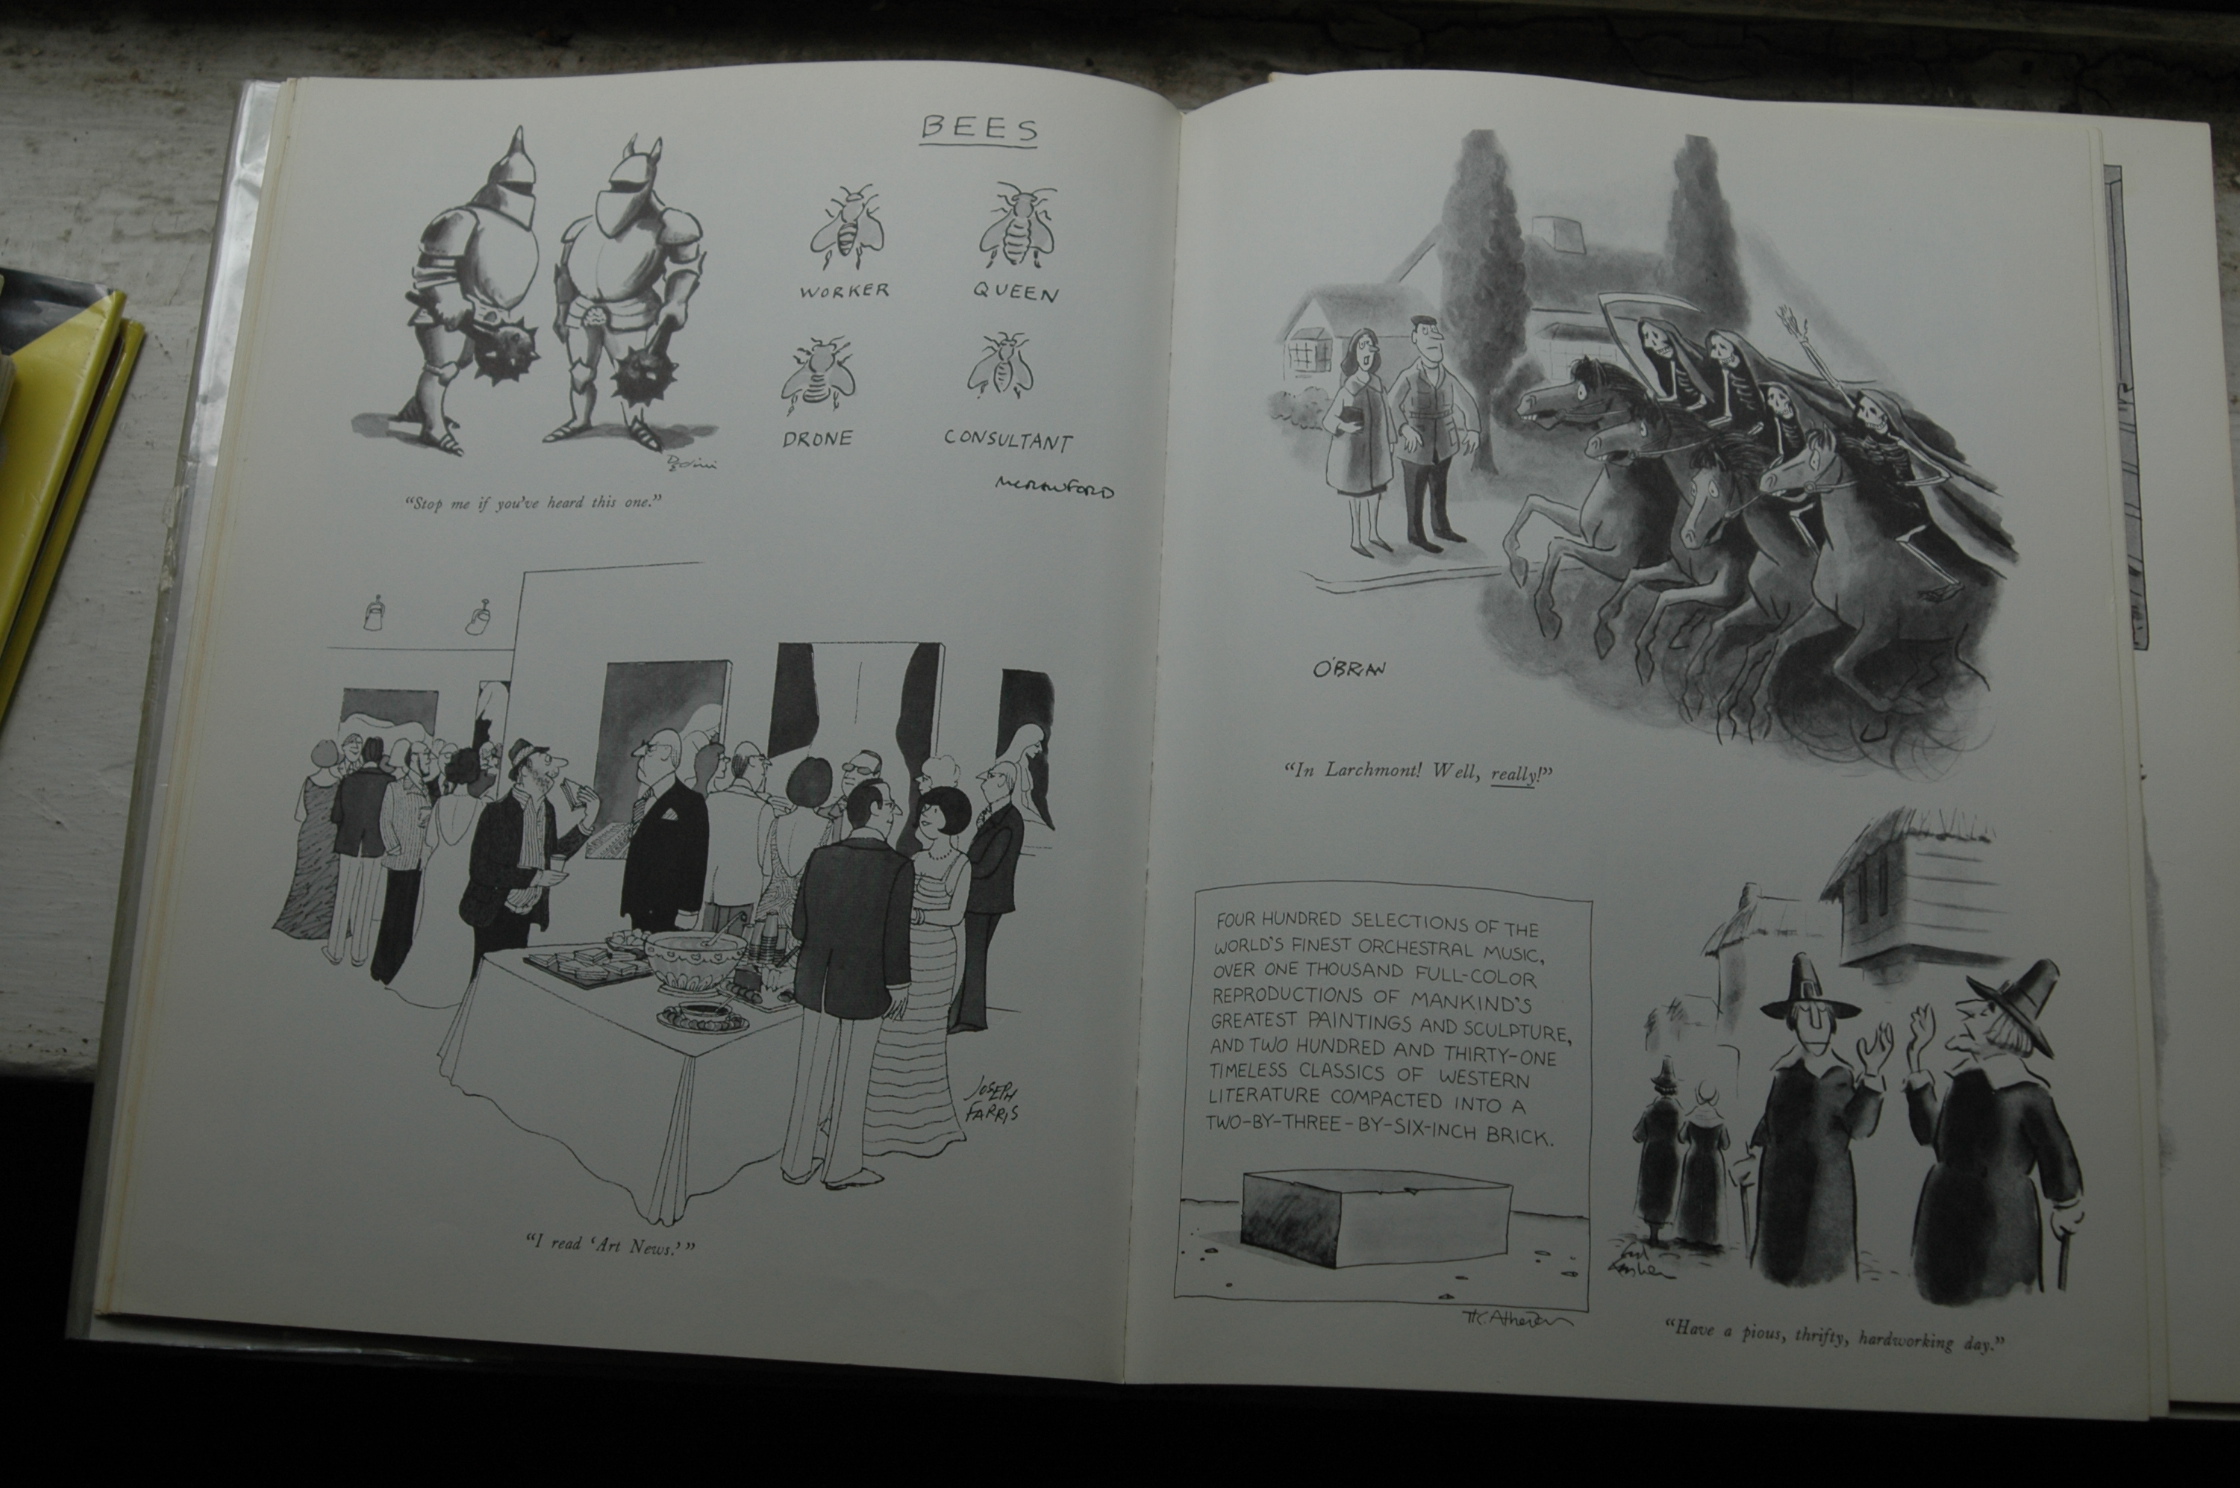 "Stop me if you've heard this one."
BEES
WORKER
QUEEN
DRONE
CONSULTANT
MCRAWFORD
JOSEPH
FARRIS
"I read 'Art News.'"
O'BRIAN
"In Larchmont! Well, really!"
FOUR HUNDRED SELECTIONS OF THE
WORLD'S FINEST ORCHESTRAL MUSIC,
OVER ONE THOUSAND FULL-COLOR
REPRODUCTIONS OF MANKIND'S
GREATEST PAINTINGS AND SCULPTURE,
AND TWO HUNDRED AND THIRTY-ONE
TIMELESS CLASSICS OF WESTERN
LITERATURE COMPACTED INTO A
TWO-BY-THREE-BY-SIX-INCH BRICK.
"Have a pious, thrifty, hardworking day."